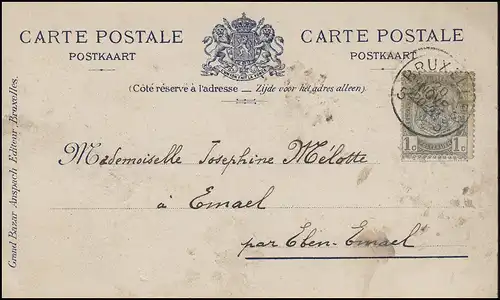 CARTE POSTALE
POSTKAART
CARTE POSTALE
POSTKAART
(Côté réservé à l'adresse — Zijde voor het adres alleen).
BRUXELLES
1c 1c
Mademoiselle Josephine Mélotte
à Emael
par Eben-Emael
Grand Bazar Anspach Editeur Bruxelles.